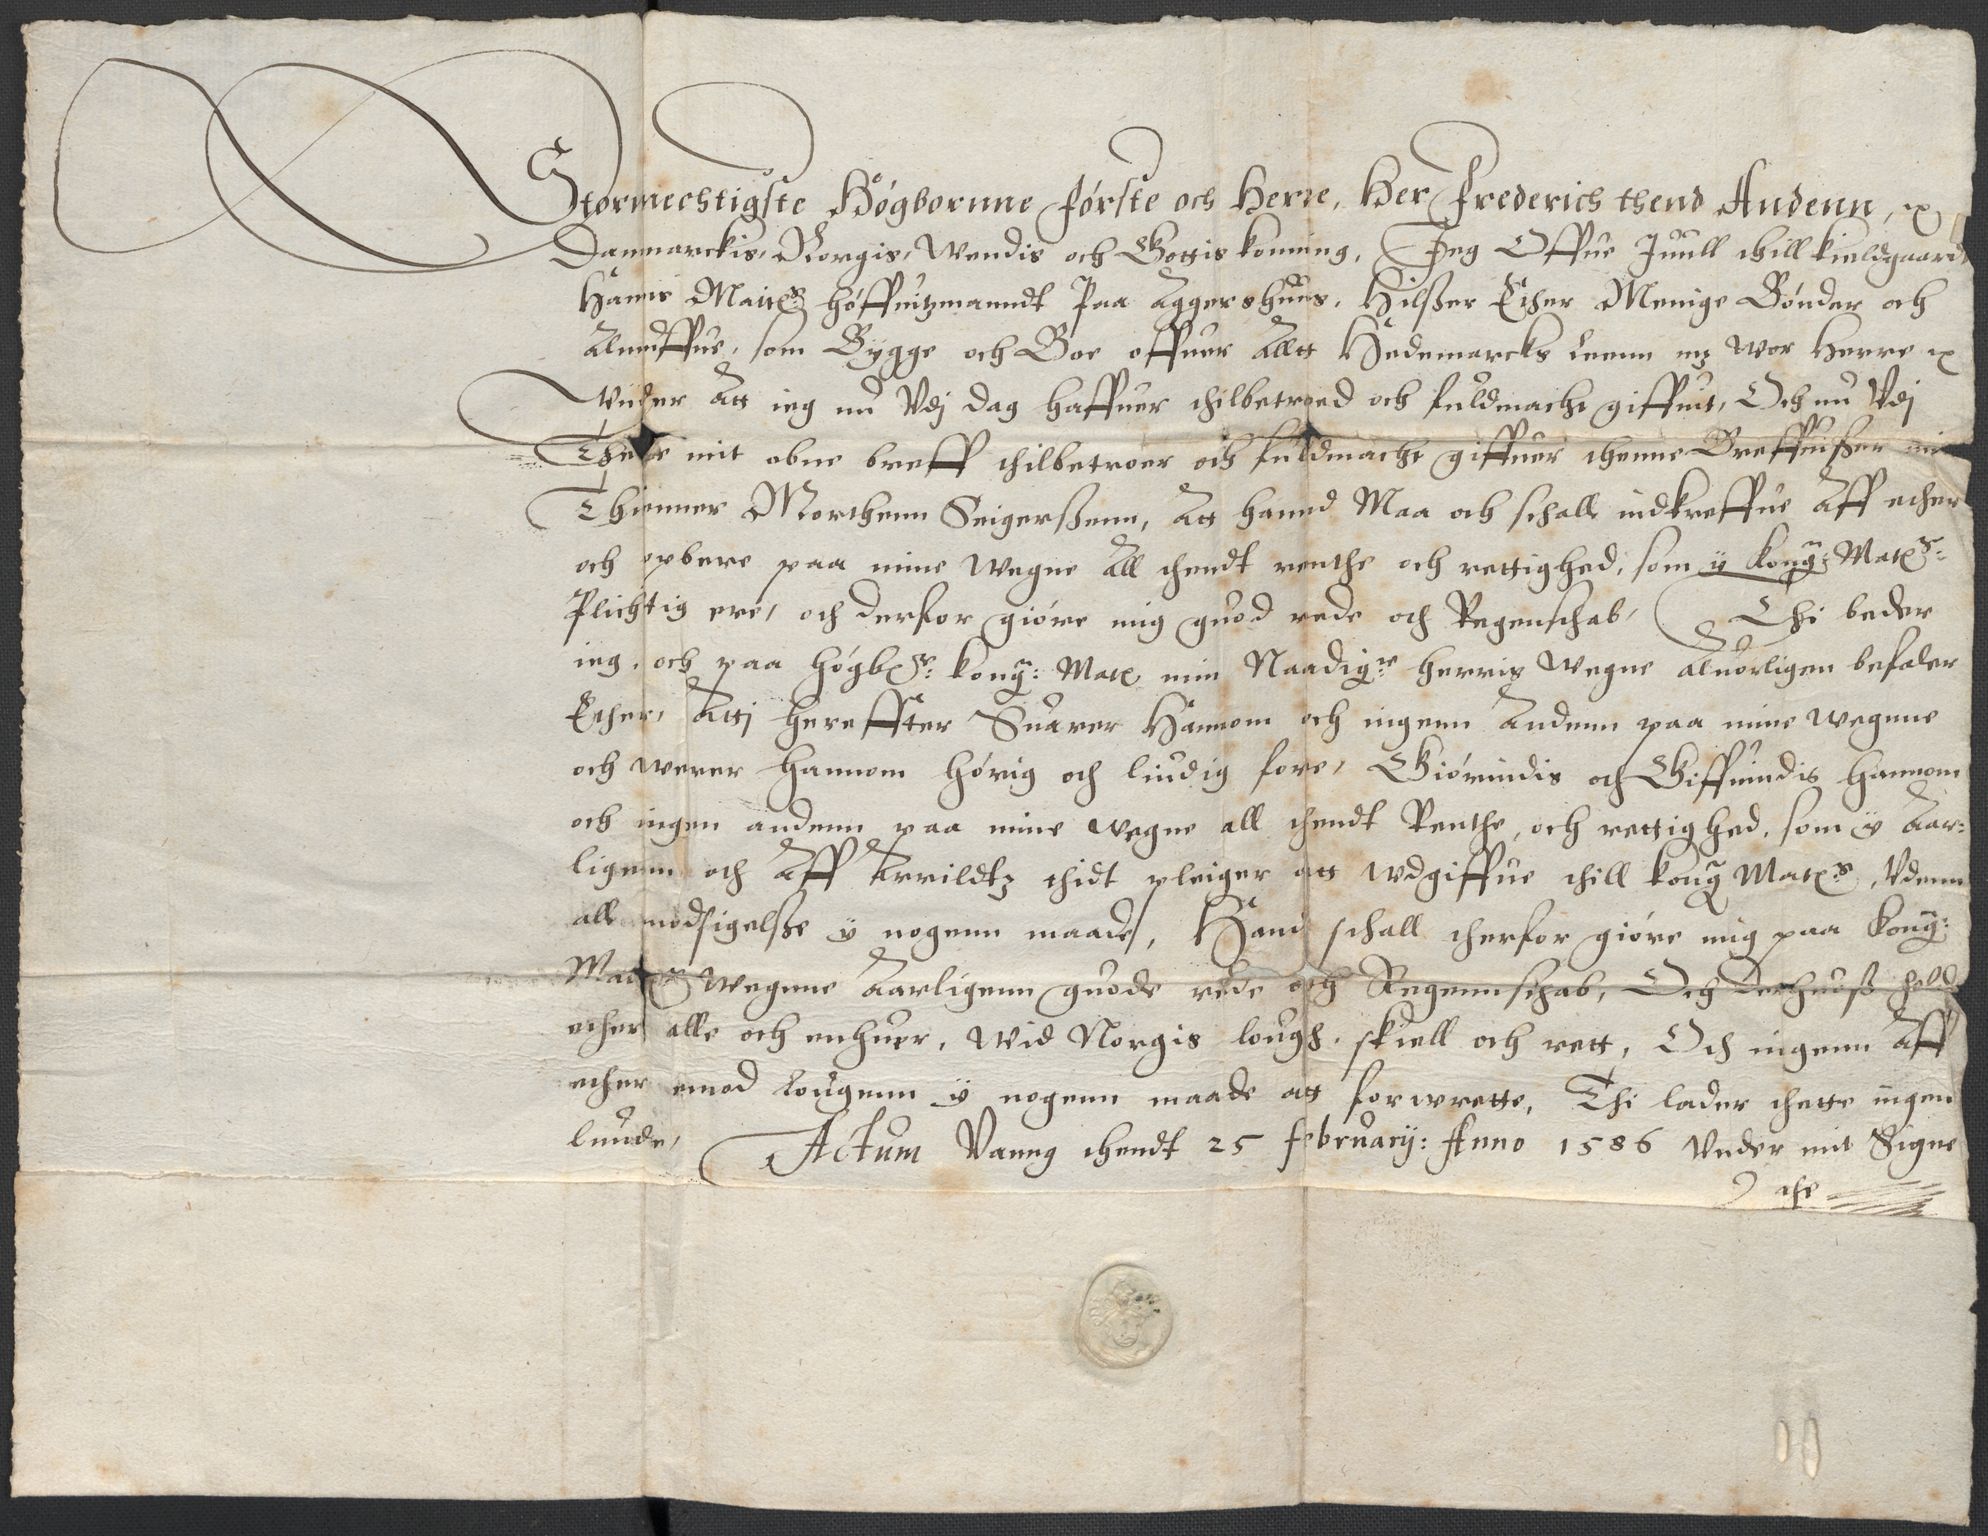 Stormechtigste Høgbornne første och Herre, Her Frederich thend Andenn, ꝛc
Danmarckis, Norgis, Wendis och Gottis konning, Jeg Offue Juull thill kieldgaard
Hanns Maittꝭ høffuitzmanndt Paa Aggershuus, Hilßer Ether Menige Bønder och
Almuffue, som Bygge och Boe offuer Alltt Hedemarcks leenn mz wor Herre ꝛc
Wider Att ieg nu Vdj dag haffuer thilbetroed och fuldmacht giffuit, Och nu Vdj
Thette mit obne breff thilbetroer och fuldmacht giffuer thenne Breffuißer min
Thienner Morthenn Seigerßenn, Att hannd Maa och schall indkreffue Aff ether
och opbere paa mine wegne All thendt renthe och rettighed, som ij kong: Matꝭ:
Plichtig ere, och derfor giøre mig guod rede och Regenschab, Thi beder
ieg, och paa høgbꝭ: kong: Mats min Naadigste herris wegne aluorligen befaler
Ether, Attj hereffter Suarer Hannom och ingenn Andenn paa mine wegnne
och werer hannom hørig och liudig fore, Giørindis och Giffuindis hannom
och ingen andenn paa mine wegne all thendt Renthe, och rettighed, som ij Aar-
ligenn och Aff Arrildtz thidt pleiger att wdgiffue thill kong Matꝭ, Vdenn
all modsigelße ij nogenn maade, Hand schall therfor giøre mig paa Kong:
Mattꝭ wegnne Aarligenn guode rede och Regennschab, Och derhuoß hold
ether alle och enhuer, wid Norgis lough, skiell och rett, Och ingenn Aff
ether emod lougenn ij nogenn maade att forwrette, Thi lader thette ingen
lunde, Actum Vanng thendt 25 februarij: Anno 1586 Vnder mit Signe
the